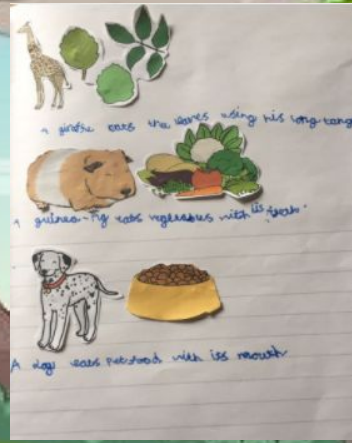 A giraffe eats the leaves using his long tong
A guinea-Pig eats vegetables with its teeth.
A dog eats Pet food with its mouth